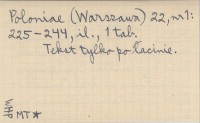 Poloniae (Warszawa) 22, nr 1:
225-244, il., 1 tab.
Tekst tylko po łacinie.
WHP MT*